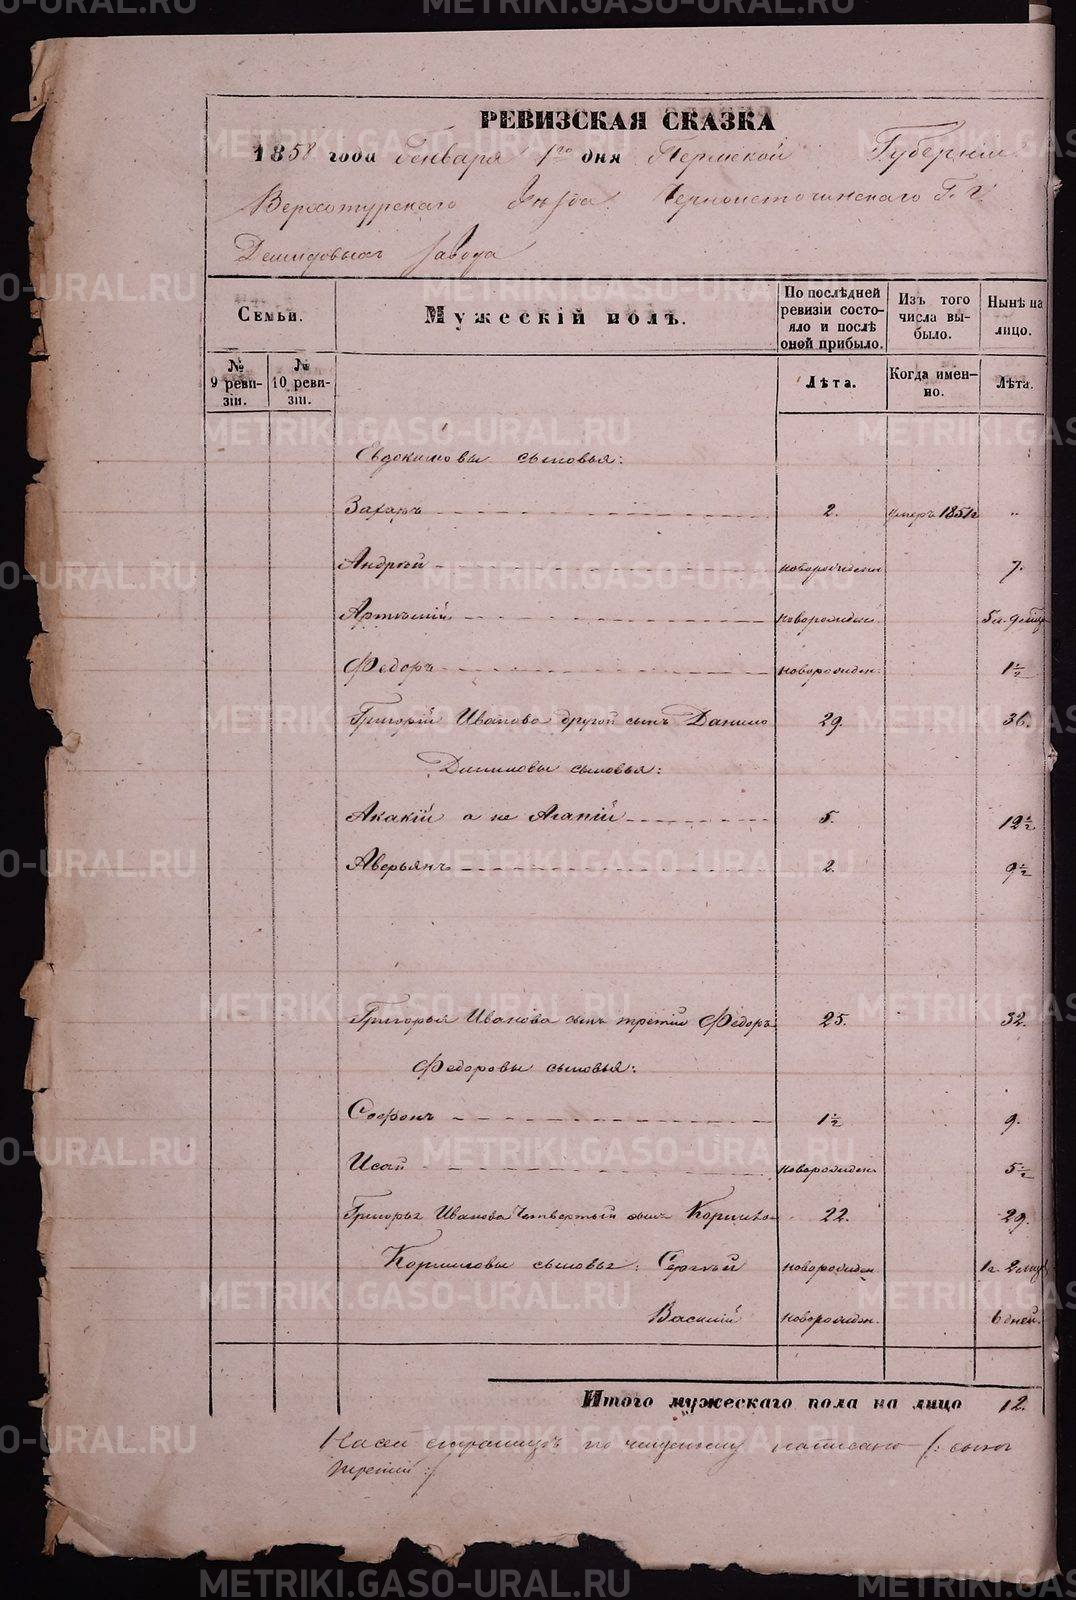 METRIKI.GASO-URAL.RU
РЕВИЗСКАЯ СКАЗКА
1858 года Генваря 1го дня Пермской Губерніи
Верхотурскаго Уѣзда Черноисточинскаго Г. г.
Демидовыхъ завода
Семьи.
Мужескій полъ.
По послѣдней ревизіи состояло и послѣ оной прибыло.
Изъ того числа выбыло.
Нынѣ на лицо.
№ 9 ревизіи.
№ 10 ревизіи.
Лѣта.
Когда именно.
Лѣта.
Евдокимовы сыновья:
Захаръ 2. умеръ 1851г „
Андрѣй новорожден 7.
Артемій новорожден. 5л. 9 мѣц
Федоръ новорожден. 1½
Григорій Иванова другой сынъ Данило 29. 36.
Даниловы сыновья:
Акакій а не Агапій 5. 12½
Аверьянъ 2. 9½
Григорья Иванова сынъ третій Федоръ 25. 32.
Федоровы сыновья:
Софонъ 1½ 9.
Исай новорожден 5½
Григорья Иванова Четвертый сынъ Корнило 22. 29.
Корниловы сыновья: Сергѣй новорожден 1г. 2 мѣц
Василій новорожден. 6 дней.
Итого мужескаго пола на лицо 12.
написано /: сынъ
третій :/